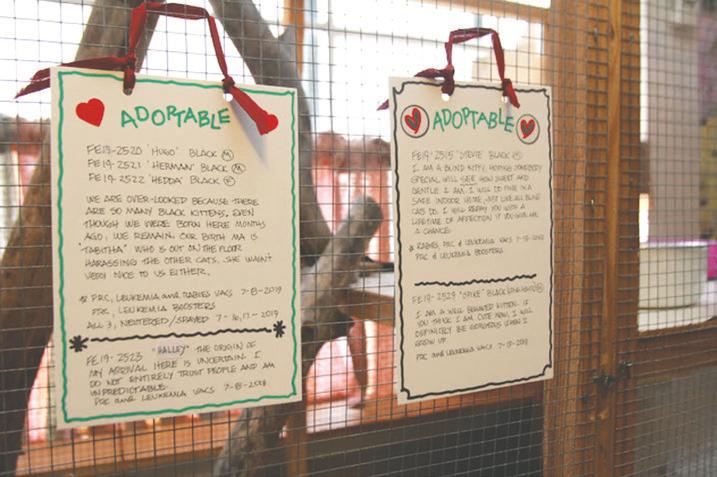 ADOPTABLE
FE19-2520 'HUGO' BLACK (M)
FE19-2521 'HERMAN' BLACK (M)
FE19-2522 'HEDDA' BLACK (F)
WE ARE OVER-LOOKED BECAUSE THERE
ARE SO MANY BLACK KITTENS, EVEN
THOUGH WE WERE BORN HERE MONTHS
AGO, WE REMAIN. OUR BIRTH MA IS
"TABITHA" WHO IS OUT ON THE FLOOR
HARASSING THE OTHER CATS. SHE WASN'T
VERY NICE TO US EITHER.
* PRC, LEUKEMIA and RABIES VACS 7-8-2019
PRC, LEUKEMIA BOOSTERS
ALL 3, NEUTERED/SPAYED 7-16,17-2019
FE19-2523 "HALLEY" THE ORIGIN OF
MY ARRIVAL HERE IS UNCERTAIN. I
DO NOT ENTIRELY TRUST PEOPLE AND AM
UNPREDICTABLE.
PRC and LEUKEMIA VACS 7-8-2019
ADOPTABLE
FE19-2515 "STEVIE" BLACK
I AM A BLIND KITTY, HOPING SOMEBODY
SPECIAL WILL SEE HOW SWEET AND
GENTLE I AM. I WILL DO FINE IN A
SAFE INDOOR HOME, JUST LIKE ALL BLIND
CATS DO. I WILL REPAY YOU WITH A
LIFETIME OF AFFECTION IF YOU GIVE ME
A CHANCE.
* RABIES, PRC & LEUKEMIA VACS
PRC & LEUKEMIA BOOSTERS
FE19-2529 "SPIKE" BLACK LONG HAIRED
I AM A WELL BEHAVED KITTEN. IF
YOU THINK I AM CUTE NOW, I WILL
DEFINITELY BE GORGEOUS WHEN I
GROW UP.
PRC and LEUKEMIA VACS